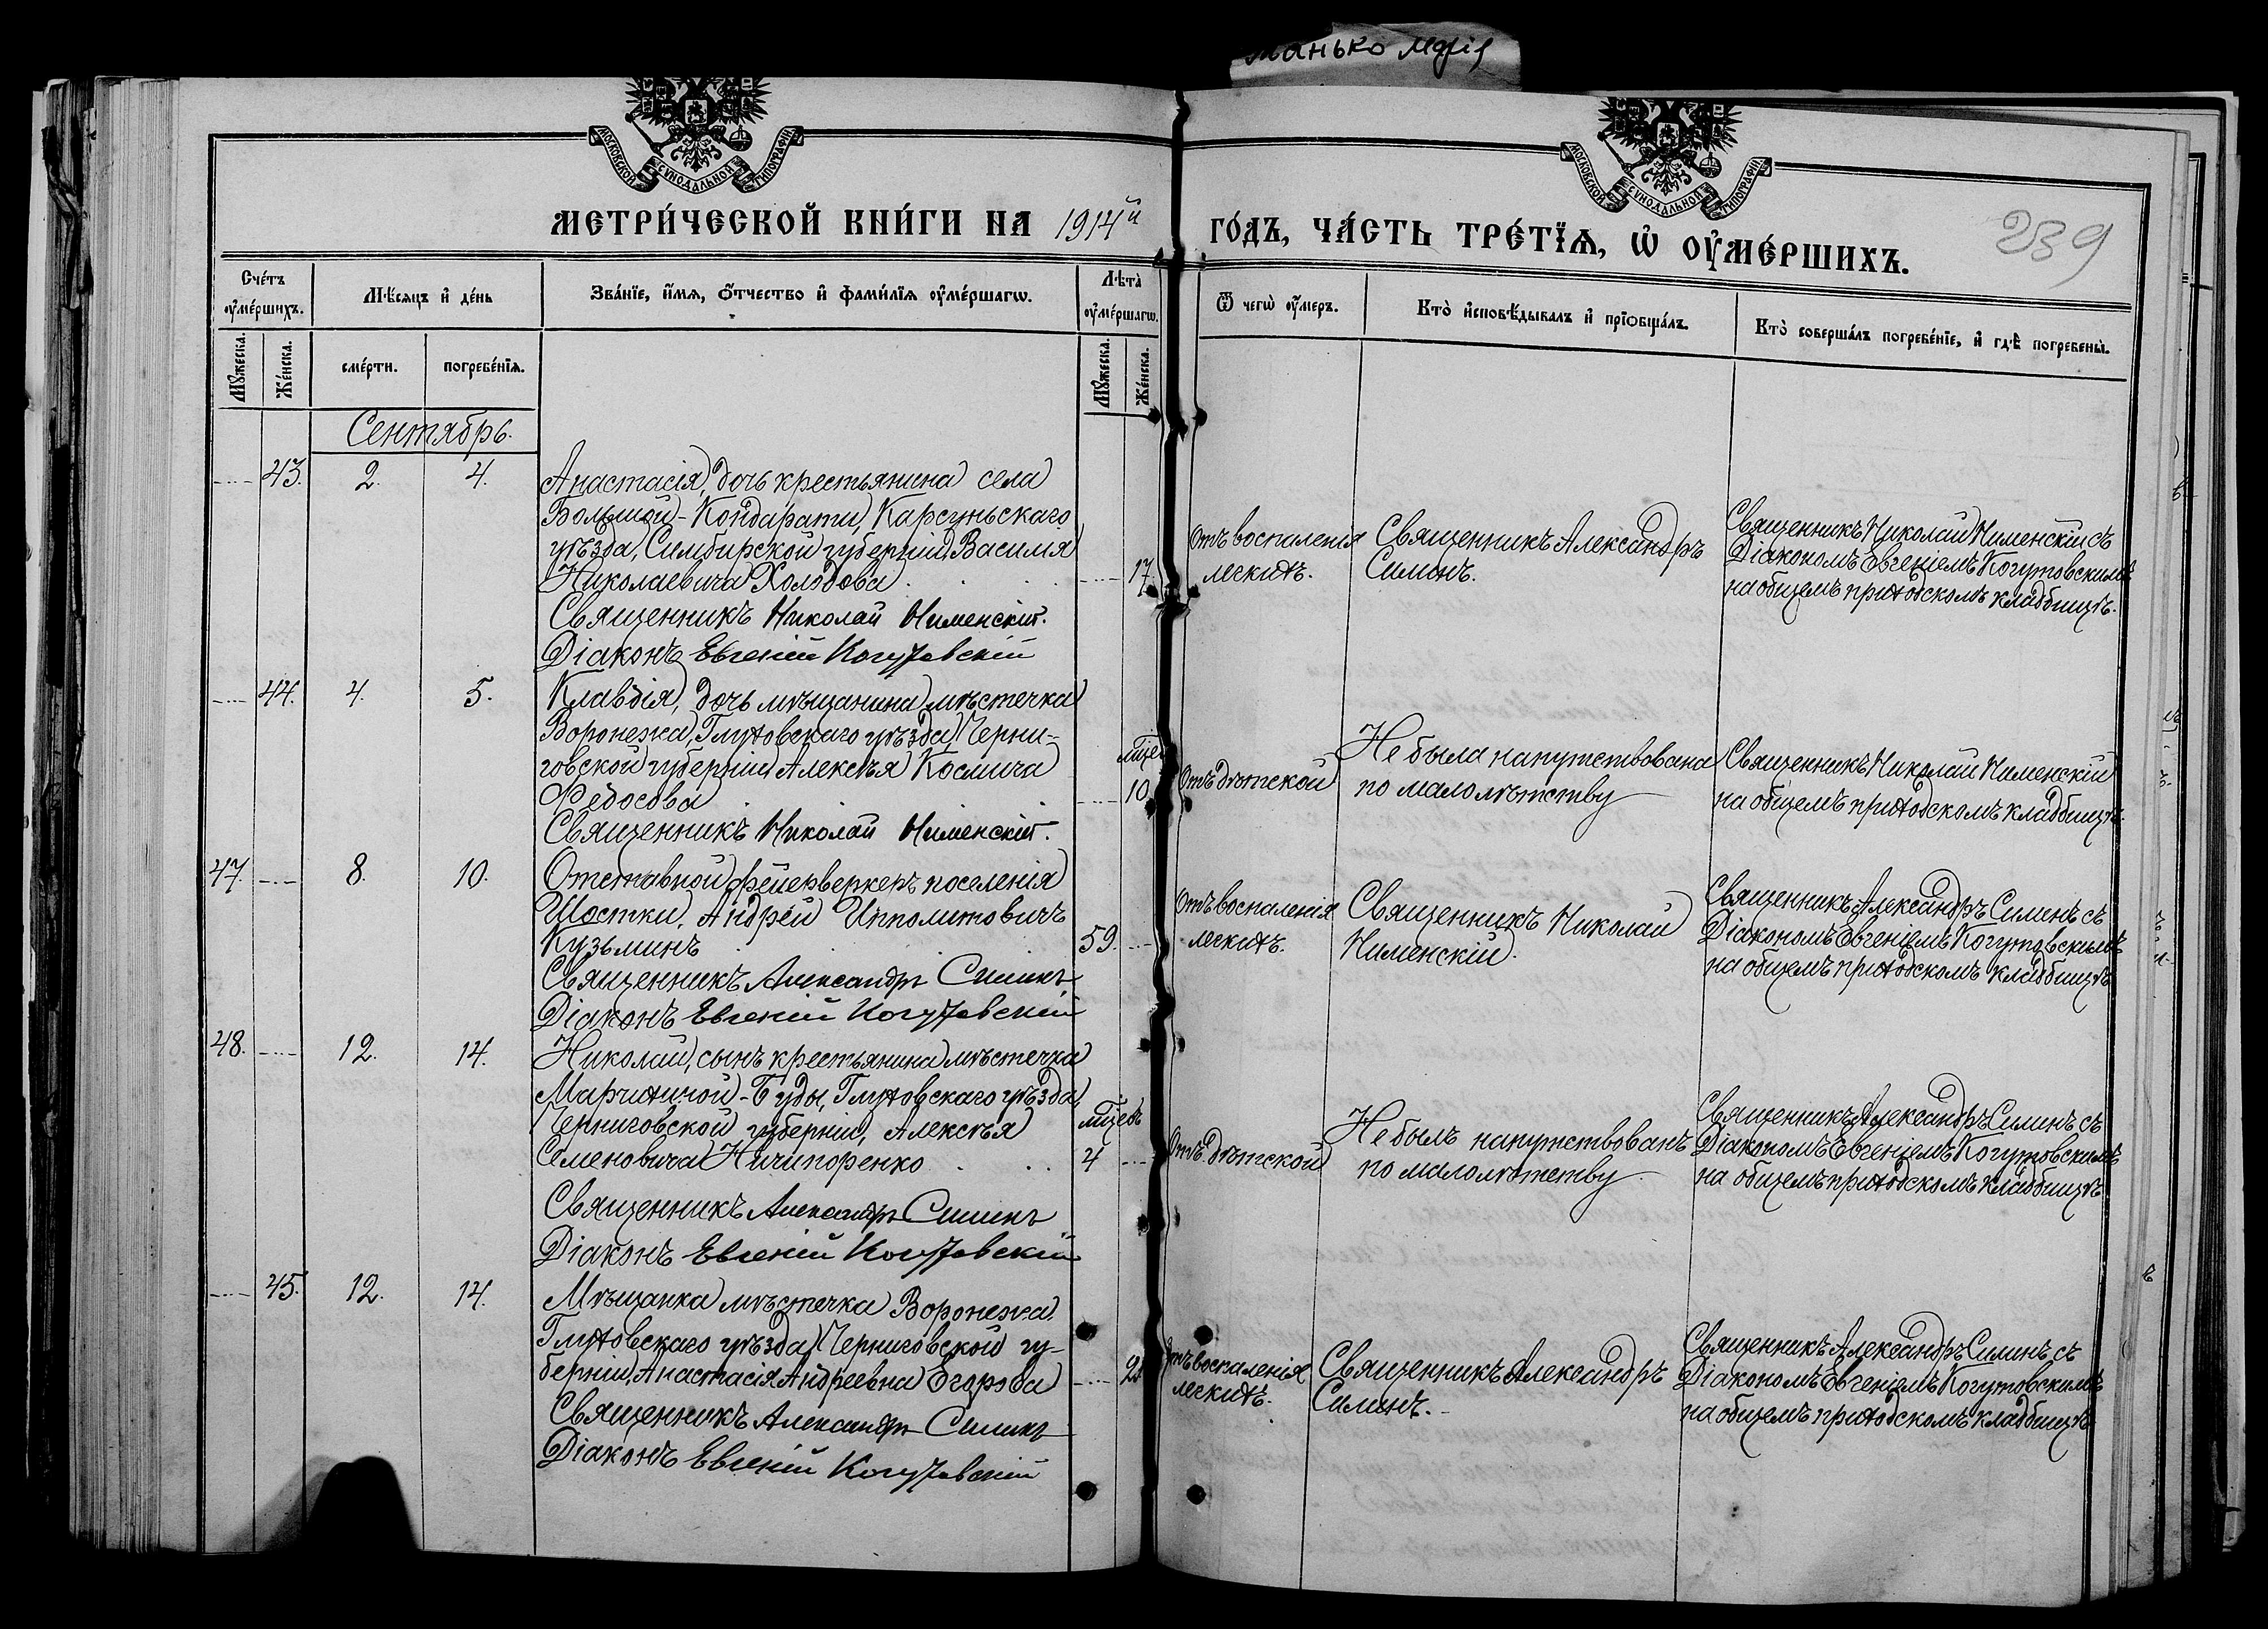 манько
МОСКОВСКОЙ СѴНОДАЛЬНОЙ ТИПОГРАФІИ
МОСКОВСКОЙ СѴНОДАЛЬНОЙ ТИПОГРАФІИ
МЕТРИ́ЧЕСКОЙ КНИ́ГИ НА 1914й
ГО́ДЪ, ЧА́СТЬ ТРЕ́ТЇѦ, Ѡ҆ ОУ҆МЕ́РШИХЪ.
239
Сче́тъ оу҆ме́ршихъ.
Мѣ́сяцъ и҆ де́нь
Зва́нїе, и҆́мя, ѻ҆́тчество и҆ фами́лїя оу҆ме́ршагѡ.
Лѣта̀ оу҆ме́ршагѡ.
Ѿ чегѡ̀ оу҆́меръ.
Кто̀ и҆сповѣ́дывалъ и҆ прїобща́лъ.
Кто̀ соверша́лъ погребе́нїе, и҆ гдѣ̀ погребены̀.
Мꙋ́жеска.
Же́нска.
сме́рти.
погребе́нїя.
Мꙋ́жеска.
Же́нска.
Сентябрь.
43. 2. 4. Анастасія, дочь крестьянина села
Большой-Кондарати, Карсуньскаго
уѣзда, Симбирской губерніи, Василія
Николаевича Холодова 17.
Священникъ Николай Нименскій.
Діаконъ Евгеній Когутовскій
Отъ воспаленія
легкихъ.
Священникъ Александръ
Силинъ.
Священникъ Николай Нименскій съ
Діакономъ Евгеніемъ Когутовскимъ
на общемъ приходскомъ кладбищѣ.
44. 4. 5. Клавдія, дочь мѣщанина мѣстечка
Воронежа, Глуховскаго уѣзда, Черни-
говской губерніи Алексѣя Космича
Федосова мцев 10.
Священникъ Николай Нименскій.
Отъ дѣтской
Не была напутствована
по малолѣтству
Священникъ Николай Нименскій
на общемъ приходскомъ кладбищѣ.
47. 8. 10. Отставной фейерверкеръ поселенія
Шостки, Андрей Ипполитовичъ
Кузьминъ 59.
Священникъ Александръ Силинъ
Діаконъ Евгеній Когутовскій
Отъ воспаленія
легкихъ.
Священникъ Николай
Нименскій.
Священникъ Александръ Силинъ съ
Діакономъ Евгеніемъ Когутовскимъ
на общемъ приходскомъ кладбищѣ
48. 12. 14. Николай, сынъ крестьянина мѣстечка
Марчихиной-Буды, Глуховскаго уѣзда,
Черниговской губерніи, Алексѣя мцевъ
Семеновича Ничипоренко 4
Священникъ Александръ Силинъ
Діаконъ Евгеній Когутовскій
Отъ дѣтской
Не былъ напутствованъ
по малолѣтству.
Священникъ Александръ Силинъ съ
Діакономъ Евгеніемъ Когутовскимъ
на общемъ приходскомъ кладбищѣ
45. 12. 14. Мѣщанка мѣстечка Воронежа,
Глуховскаго уѣзда, Черниговской гу-
берніи, Анастасія Андреевна Егорова
Священникъ Александръ Силинъ
Діаконъ Евгеній Когутовскій
Отъ воспаленія
легкихъ.
Священникъ Александръ
Силинъ.
Священникъ Александръ Силинъ съ
Діакономъ Евгеніемъ Когутовскимъ
на общемъ приходскомъ кладбищѣ